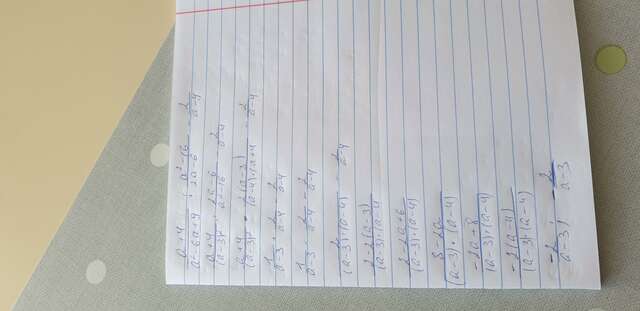 a+4/a²-6a+9 : a²-16/2a-6 - 2/a-4
a+4/(a-3)² · 2a-6/a²-16 - 2/a-4
a+4/(a-3)² · 2(a-3)/(a-4)·(a+4 - 2/a-4
1/a-3 · 2/a-4 - 2/a-4
1/a-3 · 2/a-4 - 2/a-4
2/(a-3)·(a-4) - 2/a-4
2-2(a-3)/(a-3)·(a-4)
2-2a+6/(a-3)·(a-4)
8-2a/(a-3)·(a-4)
-2a+8/(a-3)·(a-4)
-2(a-4)/(a-3)·(a-4)
-2/a-3 ; -2/a-3